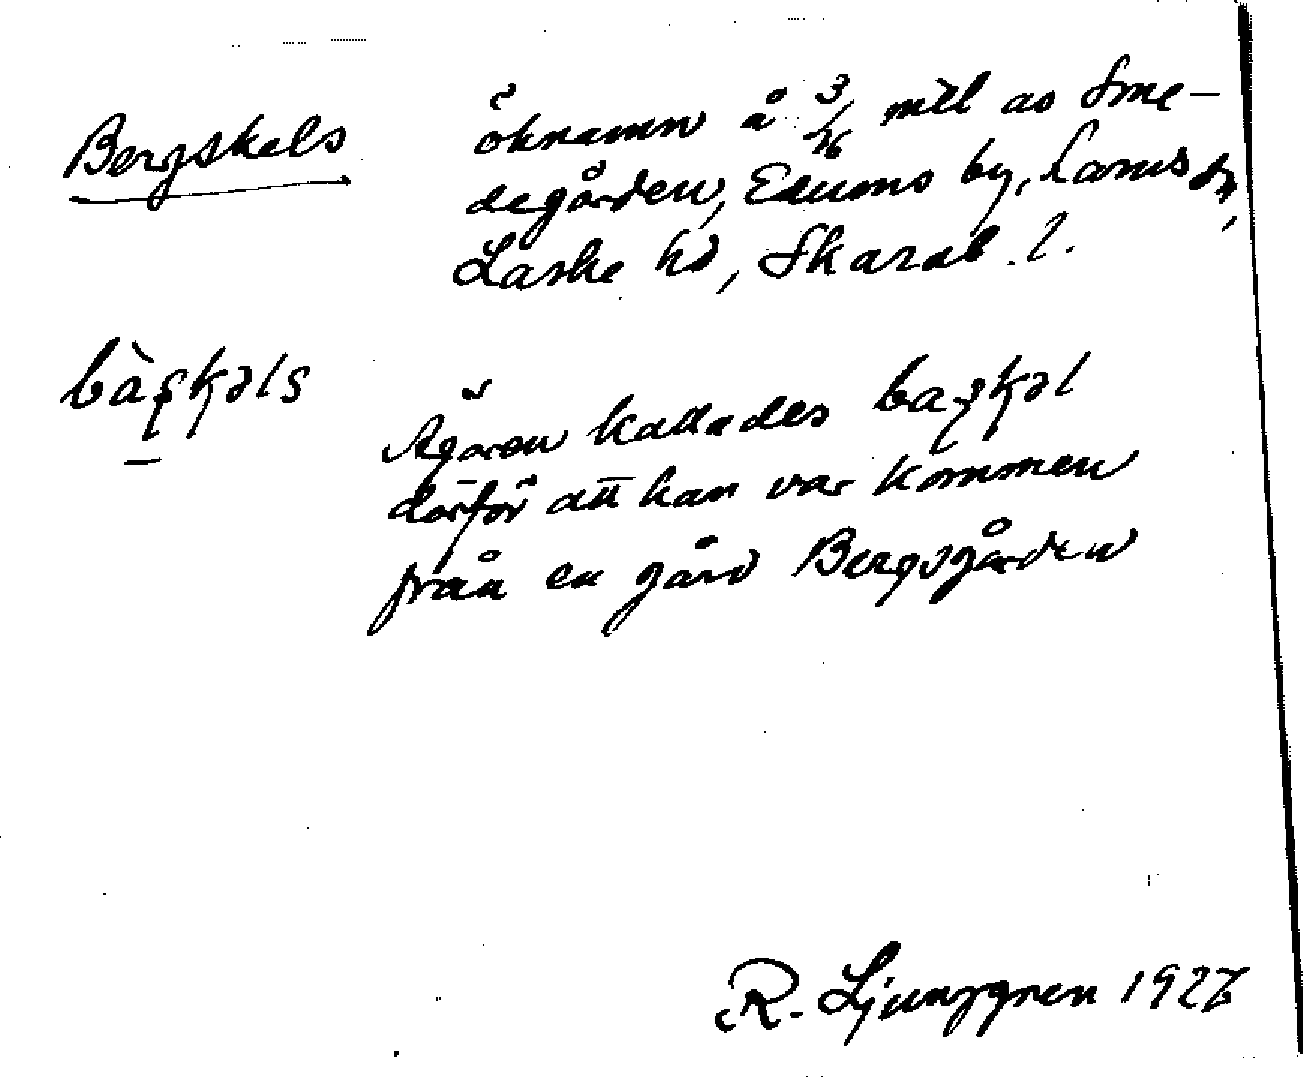 Bergskels
öknamn å 3/16 mtl av Sme-
degården, Edums by, Larvs sn,
Laske hd, Skarab. l.
bàʂkəls
Ägaren kallades baʂkəl
därför att han var kommen
från en gård Bergsgården
R. Ljunggren 1927